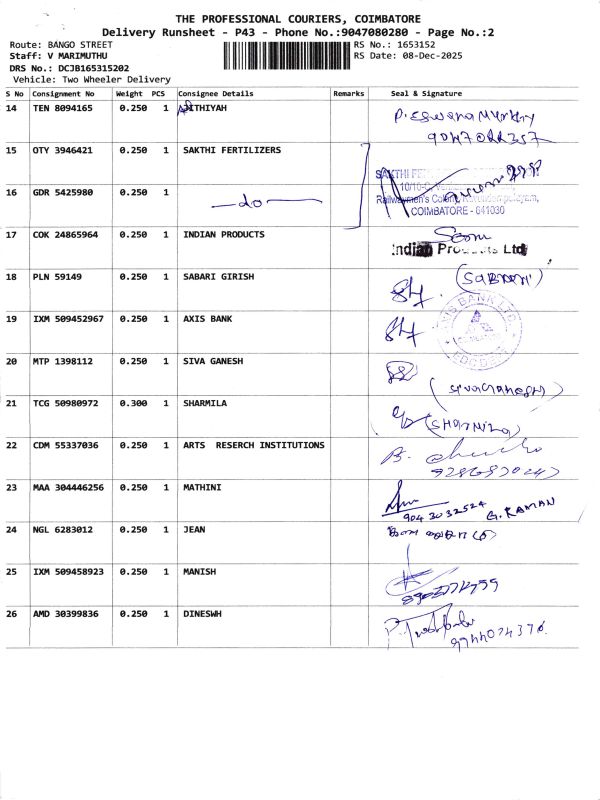 THE PROFESSIONAL COURIERS, COIMBATORE
Delivery Runsheet - P43 - Phone No.:9047080280 - Page No.:2
Route: BANGO STREET
RS No.: 1653152
Staff: V MARIMUTHU
RS Date: 08-Dec-2025
DRS No.: DCJB165315202
Vehicle: Two Wheeler Delivery
S No Consignment No Weight PCS Consignee Details Remarks Seal & Signature
14 TEN 8094165 0.250 1 ADITHIYAH
15 OTY 3946421 0.250 1 SAKTHI FERTILIZERS
16 GDR 5425980 0.250 1 —do—
Railwaymen's Colony
COIMBATORE - 641030
17 COK 24865964 0.250 1 INDIAN PRODUCTS
Indian Products Ltd
18 PLN 59149 0.250 1 SABARI GIRISH
19 IXM 509452967 0.250 1 AXIS BANK
AXIS BANK LTD.
20 MTP 1398112 0.250 1 SIVA GANESH
(SIVAGANESH)
21 TCG 50980972 0.300 1 SHARMILA
(SHARMILA)
22 CDM 55337036 0.250 1 ARTS RESERCH INSTITUTIONS
23 MAA 304446256 0.250 1 MATHINI
9043032524 G. RAMAN
24 NGL 6283012 0.250 1 JEAN
25 IXM 509458923 0.250 1 MANISH
26 AMD 30399836 0.250 1 DINESWH
9744074376